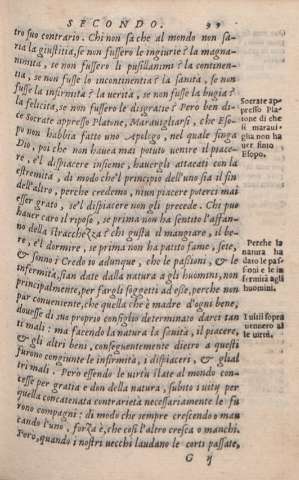 SECONDO. 99
tro suo contrario. Chi non sa che al mondo non sa-
ria la giustitia, se non fussero le ingiurie? la magna-
nimità, se non fussero li pusillanimi? la continen-
tia, se non fusse lo incontinentia? la sanità, se non
fusse la infirmità? la uerità, se non fusse la bugia?
la felicità, se non fussero le disgratie? Però ben di-
ce Socrate appresso Platone, Marauigliarsi, che Eso-
po non habbia fatto uno Apologo, nel quale singa
Dio, poi che non hauea mai potuto unire il piace-
re, e'l dispiacere insieme, hauergli attacati con la
estremità, di modo che'l principio dell'uno sia il fin
dell'altro, perche credemo, niun piacere poterci mai
esser grato, se'l dispiacere non gli precede. Chi puo
hauer caro il riposo, se prima non ha sentito l'affan-
no della stracchezza? chi gusta il mangiare, il be-
re, e'l dormire, se prima non ha patito fame, sete,
& sonno? Credo io adunque, che le passioni, & le
infermità, sian date dalla natura a gli huomini, non
principalmente, per fargli soggetti ad esse, perche non
par conueniente, che quella che è madre d'ogni bene,
douesse di suo proprio consiglio determinato darci tan
ti mali: ma facendo la natura la sanità, il piacere,
& gli altri beni, conseguentemente dietro a questi
furono congiunte le infirmità, i dispiaceri, & gli al
tri mali. Però essendo le uirtù state al mondo con-
cesse per gratia e don della natura, subito i uitij per
quella concatenata contrarietà necessariamente le fu
rono compagni: di modo che sempre crescendo o man
cando l'uno, forza è, che cosi l'altro cresca o manchi.
Però, quando i nostri uecchi laudano le corti passate,
G ij
Socrate ap-
presso Pla-
tone di che
si maraui-
glia non ha
uer finto
Esopo.
Perche la
natura ha
dato le pas-
sioni e le in
fermità agli
huomini.
I uitij sopra
uennero al
le uirtù.